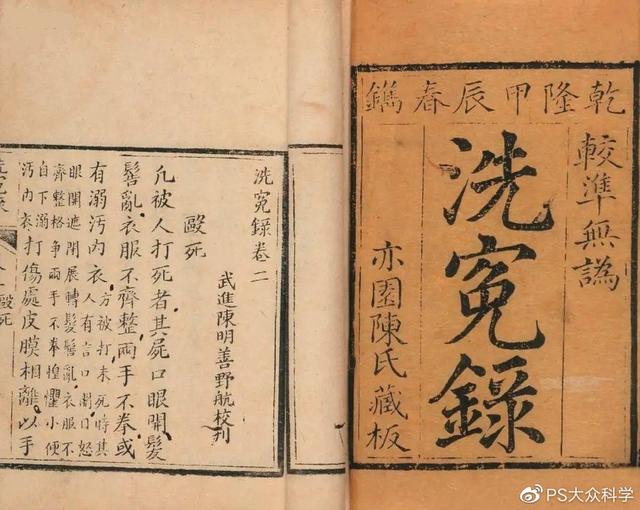 乾隆甲辰春鐫
較準無譌
洗寃錄
亦園陳氏藏板
洗寃錄卷二
武進陳明善野航校刋
毆死
凢被人打死者其屍口眼開髮
髻亂衣服不齊整兩手不拳或
有溺汚內衣
方被打未死時其
人有言口開口怒
眼開遮閉展轉髮髻亂衣服不
齊整格爭兩手不拳惶懼小便
自下溺
汚內衣
打傷處皮膜相離以手
毆死
PS大众科学